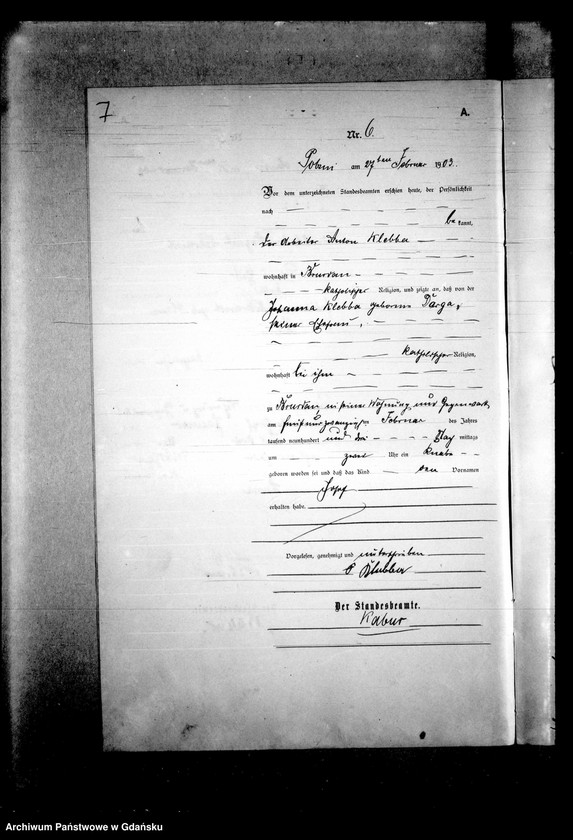 7
A.
Nr. 6.
am 27ten Februar 1903.
Vor dem unterzeichneten Standesbeamten erschien heute, der Persönlichkeit
nach
be kannt,
der Arbeiter Anton Klebba
wohnhaft in
katholischer Religion, und zeigte an, daß von der
Johanna Klebba geborene Darga,
seiner Ehefrau,
katholischer Religion,
wohnhaft bei ihm
zu in seiner Wohnung und Gegenwart,
am fünfundzwanzigsten Februar des Jahres
tausend neunhundert und drei Nach mittags
um zwei Uhr ein Knabe
geboren worden sei und daß das Kind den Vornamen
Josef
erhalten habe.
Vorgelesen, genehmigt und unterschrieben
Klebba
Der Standesbeamte.
Archiwum Państwowe w Gdańsku